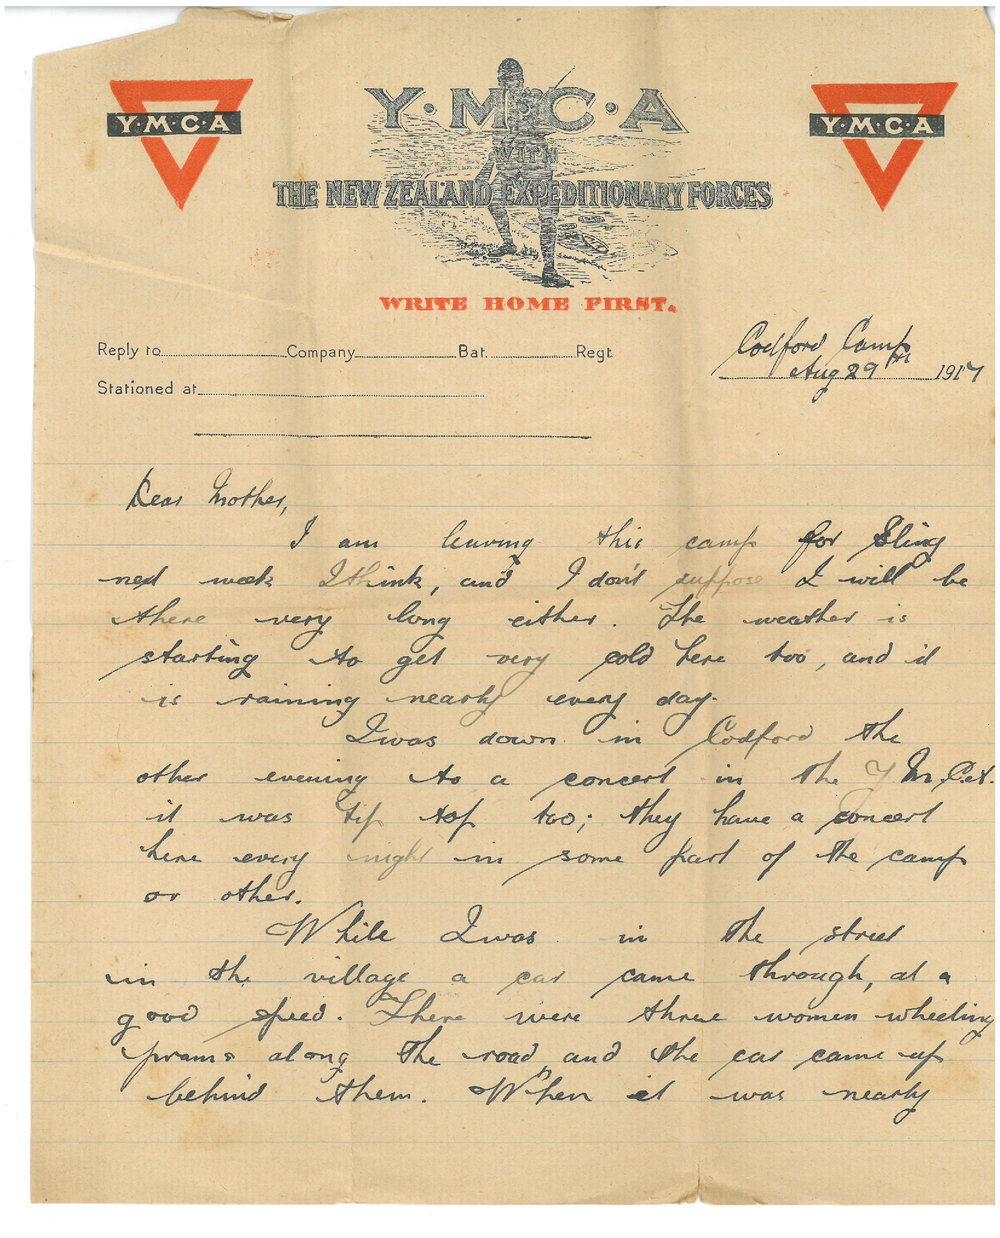 Y·M·C·A
Y·M·C·A
Y·M·C·A
WITH
THE NEW ZEALAND EXPEDITIONARY FORCES
WRITE HOME FIRST.
Reply to Company Bat. Regt.
Stationed at
Codford Camp
Aug 29th 1917
Dear Mother,
I am leaving this camp for Sling
next week I think, and I don't suppose I will be
there very long either. The weather is
starting to get very cold here too, and it
is raining nearly every day.
I was down in Codford the
other evening to a concert in the Y.M.C.A.
it was tip top too; they have a concert
here every night in some part of the camp
or other.
While I was in the street
in the village a car came through, at a
good speed. There were three women wheeling
prams along the road and the car came up
behind them. When it was nearly